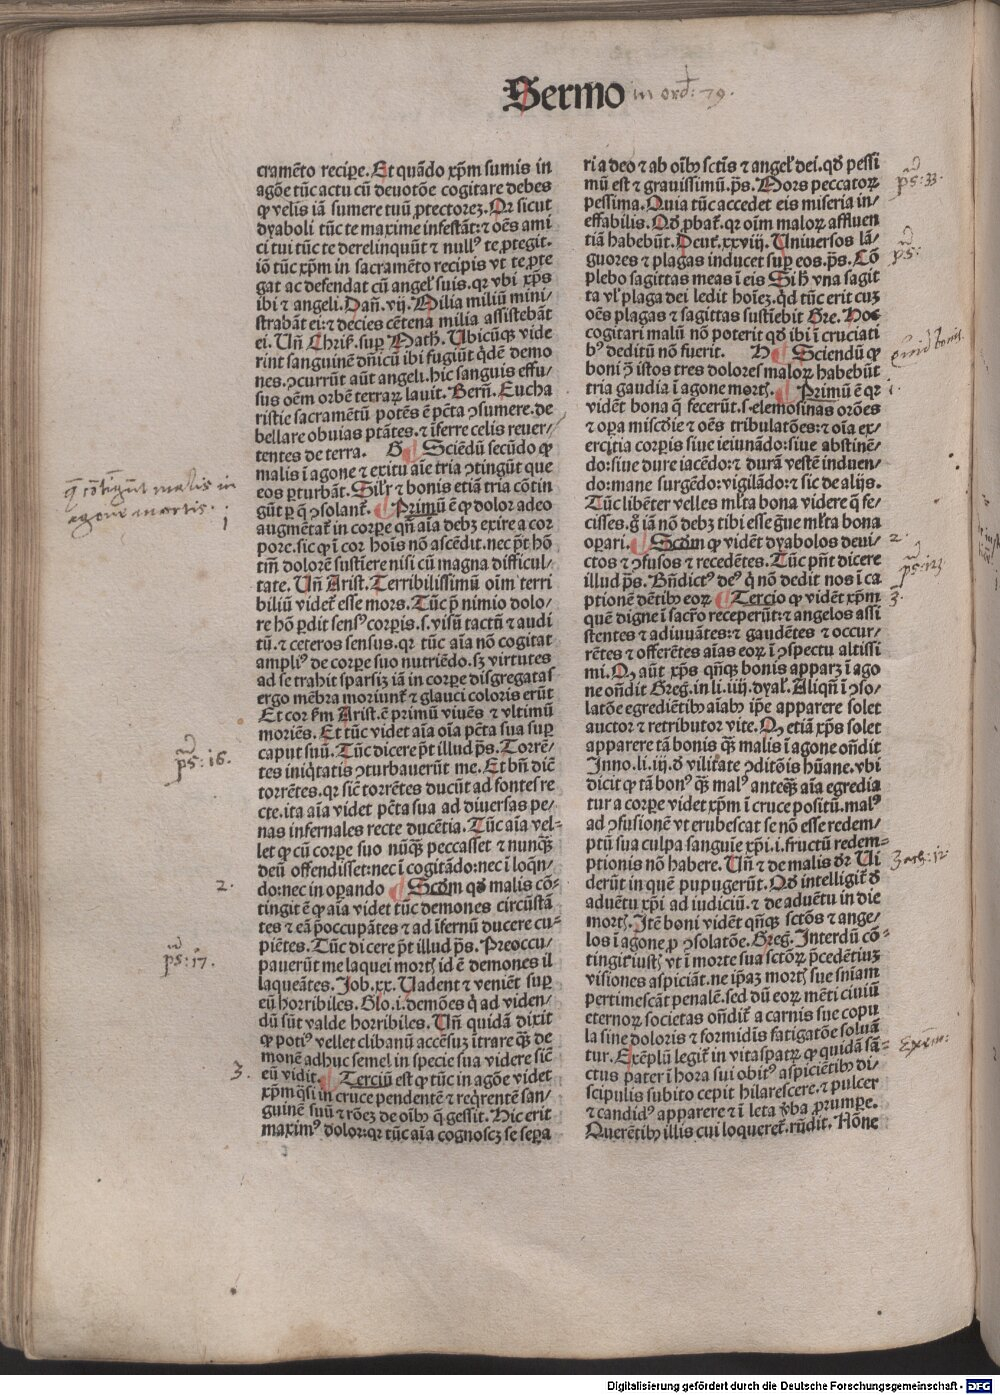 Sermo in ord: 79.
cramēto recipe. Et quādo xp̄m sumis in
agōe tūc actu cū deuotōe cogitare debes
ꝙ velis iā sumere tuū ꝓtectoreꝫ. Qꝛ sicut
dyaboli tūc te maxime infestāt: ⁊ oēs ami
ci tui tūc te derelinquūt ⁊ nullꝰ te ꝓtegit.
iō tūc xp̄m in sacramēto recipis vt te ꝓte
gat ac defendat cū angeł suis. qꝛ vbi xp̄s
ibi ⁊ angeli. Dañ. vij. Milia miliū mini/
strabāt ei: ⁊ decies cētena milia assistebāt
ei. Uñ Chriſ. suꝑ Math. Ubicūqꝫ vide
rint sanguinē dñicū ibi fugiūt q̄dē demo
nes. ꝯcurrūt aūt angeli. hic sanguis effu/
sus oēm orbē terraꝝ lauit. Berñ. Eucha
ristie sacramētū potēs ē pctā ꝯsumere. de
bellare obuias ptātes. ⁊ īferre celis reuer/
tentes de terra. G Sciēdū secūdo ꝙ
malis ī agone ⁊ exitu aīe tria ꝯtingūt que
eos ꝑturbāt. Silr̄ ⁊ bonis etiā tria cōtin
gūt ꝑ q̄ ꝯsolant᷑. Primū ē ꝙ dolor adeo
augmētat᷑ in corpe qñ aīa debꝫ exire a cor
pore. sic ꝙ ī cor hoīs nō ascēdit. nec p̄t hō
tm̄ dolorē sustiere nisi cū magna difficul/
tate. Uñ Arist. Terribilissimū oīm terri
biliū videt᷑ esse mors. Tūc p̄ nimio dolo/
re hō ꝑdit sensꝰ corpis. s. visū tactū ⁊ audi
tū. ⁊ ceteros sensus. qꝛ tūc aīa nō cogitat
ampliꝰ de corpe suo nutriēdo. sꝫ virtutes
ad se trahit sparsiꝫ iā in corpe disgregatas
ergo mēbra moriunt᷑ ⁊ glauci coloris erūt
Et cor s̄m Arist. ē primū viuēs ⁊ vltimū
moriēs. Et tūc videt aīa oīa pctā sua suꝑ
caput suū. Tūc dicere p̄t illud p̄s. Torrē/
tes iniq̄tatis ꝯturbauerūt me. Et bñ diē
torrētes. qꝛ siē torrētes ducūt ad fontes re
cte. ita aīa videt pctā sua ad diuersas pe/
nas infernales recte ducētia. Tūc aīa vel-
let ꝙ cū corpe suo nūqꝫ peccasset ⁊ nunqꝫ
deū offendisset: nec ī cogitādo: nec ī loq̄n/
do: nec in oꝑando Scdm qd malis cō-
tingit ē ꝙ aīa videt tūc demones circūstā
tes ⁊ eā p̄occupātes ⁊ ad īfernū ducere cu-
piētes. Tūc dicere p̄t illud p̄s. Preoccu/
pauerūt me laquei mortꝭ id ē demones il
laqueātes. Job. xx. Uadent ⁊ veniēt suꝑ
eū horribiles. Glo. i. demōes q̄ ad viden/
dū sūt valde horribiles. Uñ quidā dixit
ꝙ potiꝰ vellet clibanū accēsuꝫ ītrare qꝫ de
monē adhuc semel in specie sua videre siē
eū vidit. Terciū est ꝙ tūc in agōe videt
xp̄m q̄si in cruce pendentē ⁊ req̄rentē san/
guinē suū ⁊ rōeꝫ de oībꝰ q̄ gessit. Hic erit
maximꝰ dolor: qꝛ tūc aīa cognoscꝫ se sepa
ria deo ⁊ ab oībꝰ sctīs ⁊ angeł dei. qd pessi
mū est ⁊ grauissimū. p̄s. Mors peccatoꝝ
pessima. Quia tūc accedet eis miseria in/
effabilis. Qd ꝓbat᷑. qꝛ oīm maloꝝ affluen
tiā habebūt. Deut᷑. xxviij. Uniuersos lā/
guores ⁊ plagas inducet suꝑ eos. p̄s. Cō
plebo sagittas meas ī eis Si hꝰ vna sagit
ta vł plaga dei ledit hoīeꝫ. qd tūc erit cuꝫ
oēs plagas ⁊ sagittas sustiebit Gre. Hoc
cogitari malū nō poterit qd ibi ī cruciati
bꝰ deditū nō fuerit. H Sciendū ꝙ
boni ꝯ istos tres dolores maloꝝ habebūt
tria gaudia ī agone mortꝭ. Primū ē qꝛ
vidēt bona q̄ fecerūt. s. elemosinas orōes
⁊ oꝑa miscdie ⁊ oēs tribulatōes: ⁊ oīa ex/
ercitia corpis siue ieiunādo: siue abstinē/
do: siue dure iacēdo: ⁊ durā vestē induen/
do: mane surgēdo: vigilādo: ⁊ sic de alijs.
Tūc libēter velles mīta bona videre q̄ fe/
cisses. ḡ iā nō debꝫ tibi esse g̈ue mīta bona
oꝑari. Scdm ꝙ vidēt dyabolos deui/
ctos ⁊ ꝯfusos ⁊ recedētes. Tūc pñt dicere
illud p̄s. Bñdictꝰ deꝰ q̄ nō dedit nos ī ca
ptionē dētibꝰ eoꝝ Tercio ꝙ vidēt xp̄m
quē digne ī sacr̄o receperūt: ⁊ angelos assi
stentes ⁊ adiuuātes: ⁊ gaudētes ⁊ occur/
rētes ⁊ offerētes aīas eoꝝ ī ꝯspectu altissi
mi. Qꝫ aūt xp̄s qñqꝫ bonis apparꝫ ī ago
ne oñdit Greg̃. in li. iiij. dyał. Aliqñ ī ꝯso/
latōe egrediētibꝰ aīabꝰ ip̄e apparere solet
auctor ⁊ retributor vite. Qꝫ etiā xp̄s solet
apparere tā bonis qꝫ malis ī agone oñdit
Inno. li. iij. d̄ vilitate ꝯditōis hūane. vbi
dicit ꝙ tā bonꝰ qꝫ malꝰ anteqꝫ aīa egredia
tur a corpe videt xp̄m ī cruce positū. malꝰ
ad ꝯfusionē vt erubescat se nō esse redem/
ptū sua culpa sanguīe xp̄i. i. fructū redem-
ptionis nō habere. Uñ ⁊ de malis dr̄ Ui
derūt in quē pupugerūt. Qd intelligit᷑ d̄
aduētu xp̄i ad iudiciū. ⁊ de aduētu in die
mortꝭ. Itē boni vidēt qñqꝫ sctōs ⁊ ange/
los ī agone ꝓ ꝯsolatōe. Greg̃. Interdū cō-
tingit iustꝭ vt ī morte sua sctōꝝ p̄cedētiuꝫ
visiones aspiciāt. ne ip̄aꝫ mortꝭ sue sniam
pertimescāt penalē. sed dū eoꝝ mēti ciuiū
eternoꝝ societas oñdit᷑ a carnis sue copu
la sine doloris ⁊ formidīs fatigatōe soluā
tur. Exēplū legit᷑ in vitaspatꝝ ꝙ quidā sā-
ctus pater ī hora sui obitꝰ aspiciētibꝰ di/
scipulis subito cepit hilarescere. ⁊ pulcer
⁊ candidꝰ apparere ⁊ ī leta v̄ba ꝓrumpe.
Querētibꝰ illis cui loqueret᷑. rñdit. Nōne
q̄ cōtigūt malis in
agone mortis.
1
ps: 16.
2.
ps: 17.
3.
ps: 33.
ps:
1.
2.
ps: 123
3.
Zach: 12
Exem:
Digitalisierung gefördert durch die Deutsche Forschungsgemeinschaft - DFG